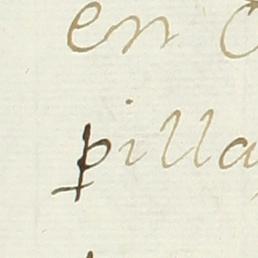 en
pilla